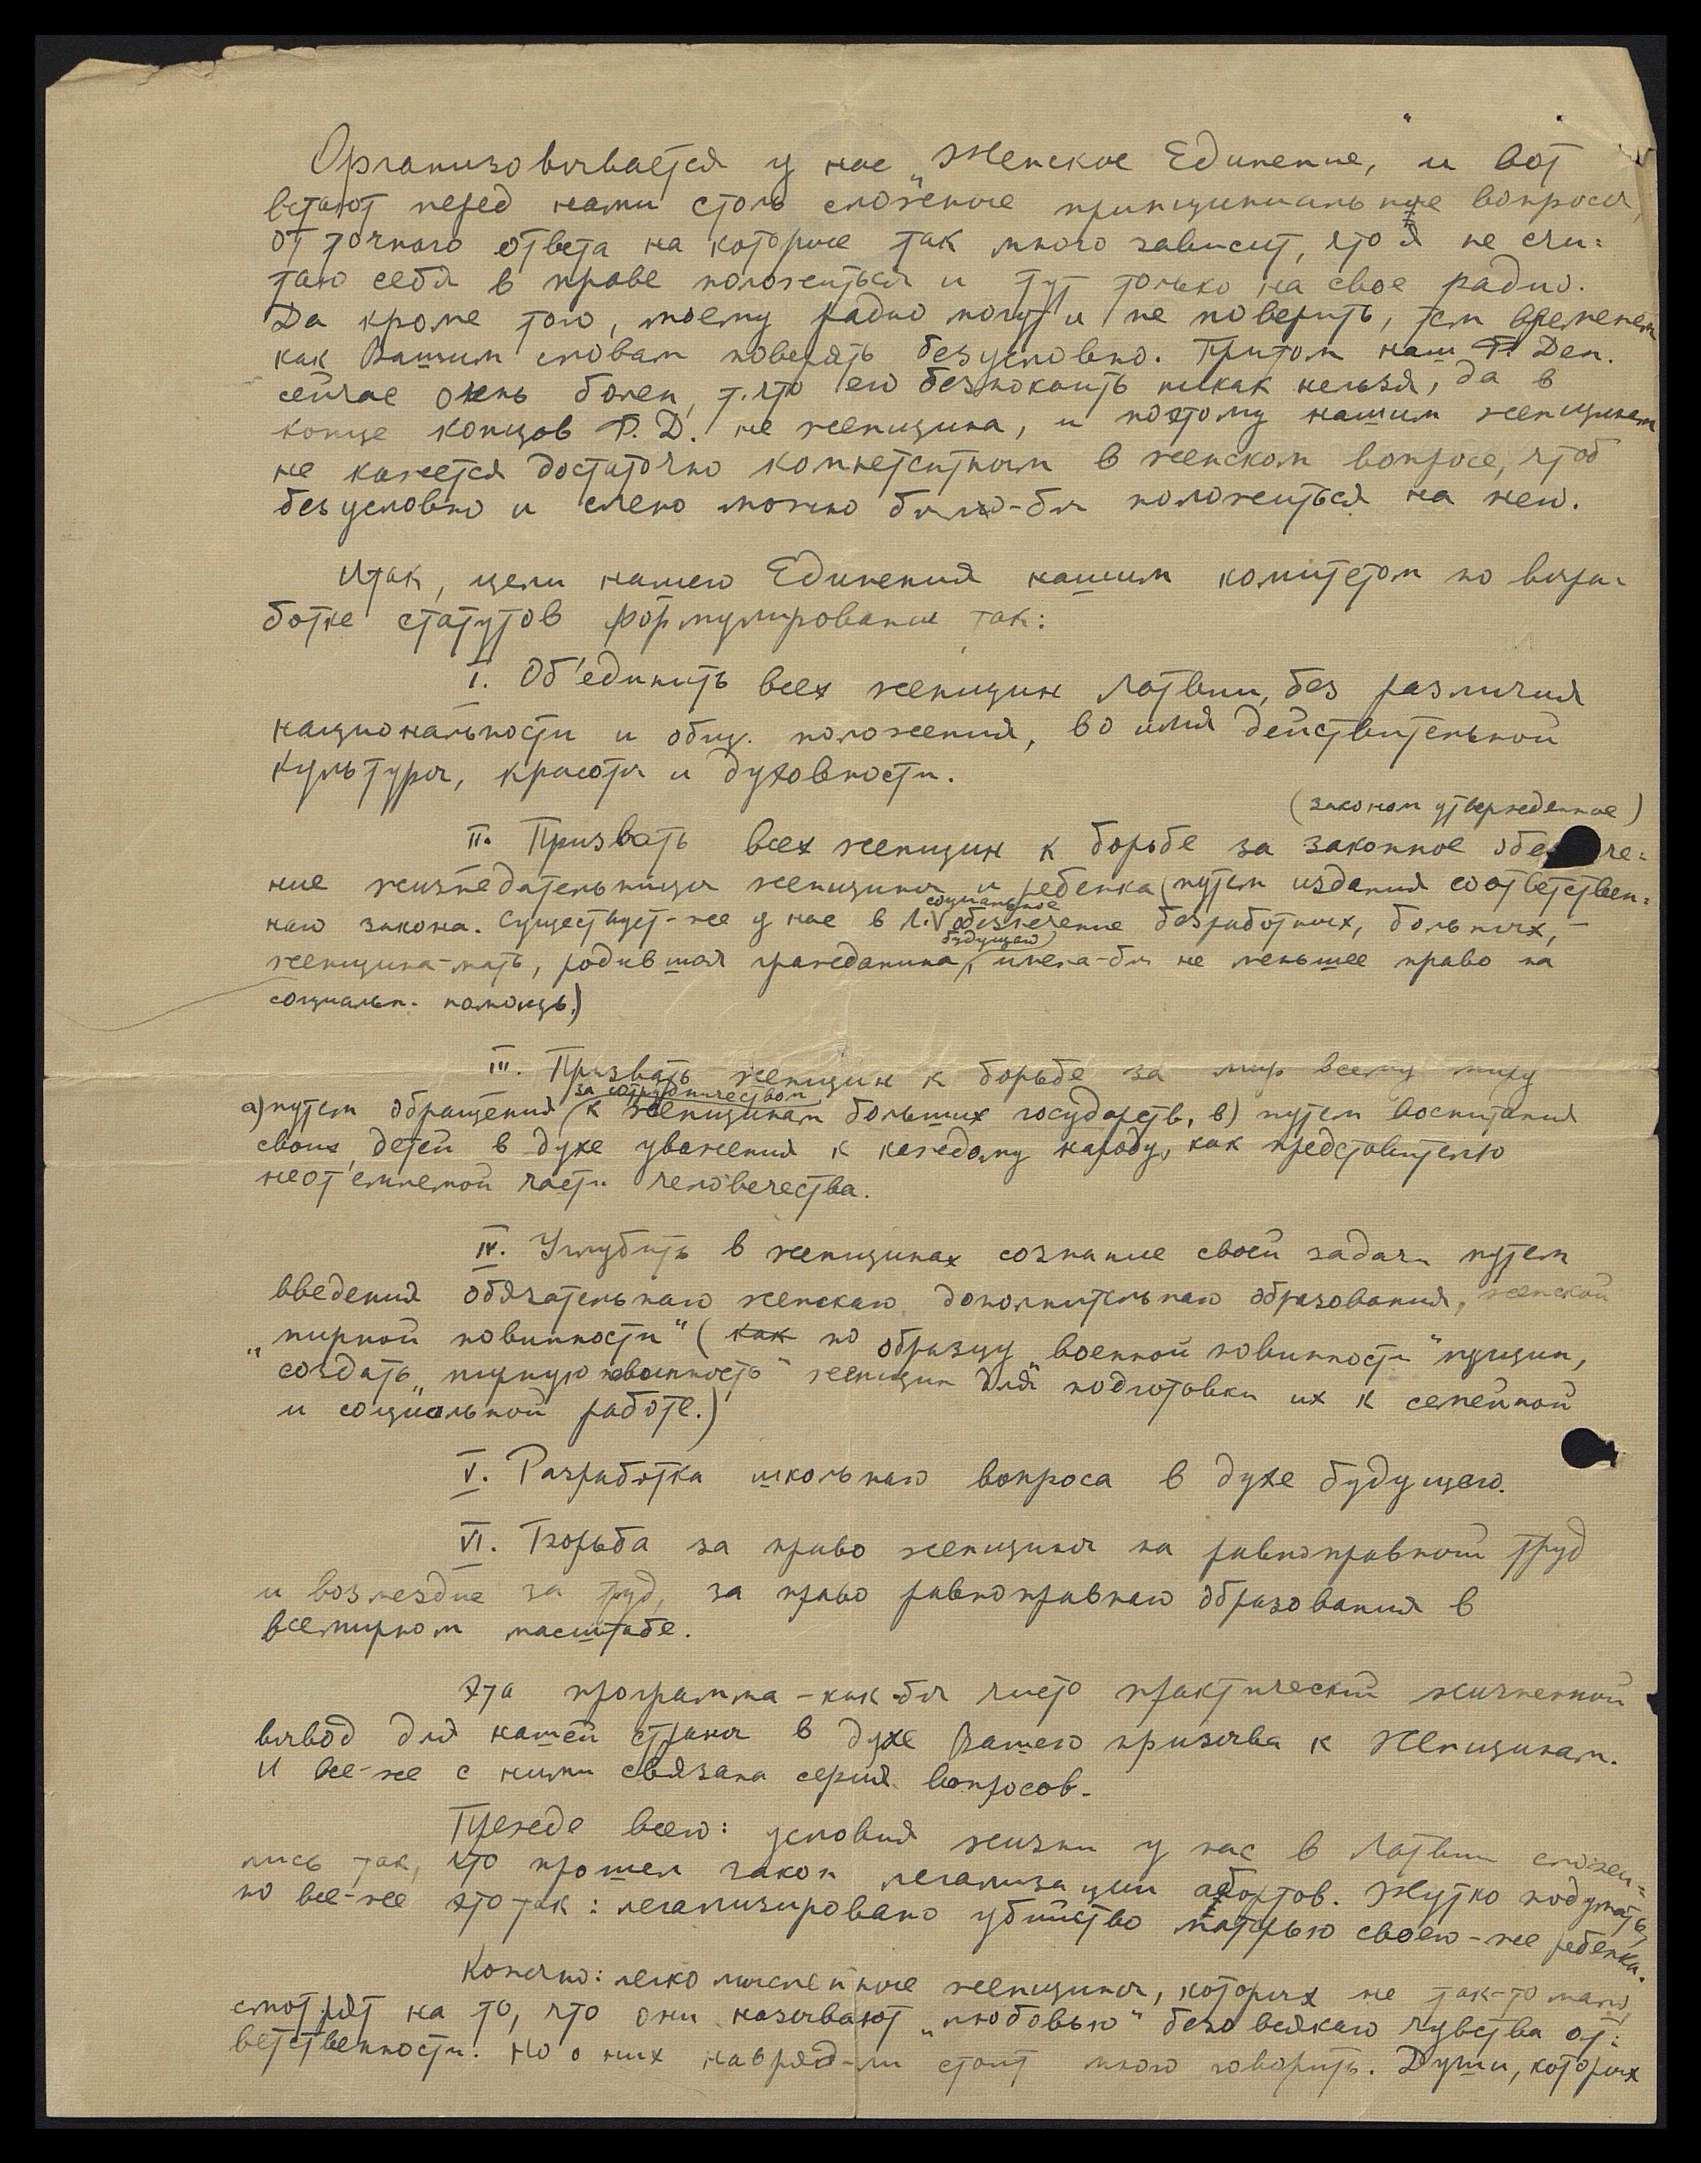 Организовывается у нас „Женское Единение," и вот
встают перед нами столь сложные принципиальные вопросы,
от точного ответа на которые так много зависит, что я не счи-
таю себя в праве положиться и тут только на свое радио.
Да кроме того, моему радио могут и не поверить, тем временем
как Вашим словам поверять безусловно. Притом наш Ф. Ден.
сейчас очень болен, т.что его безпокоить никак нельзя, да в
конце концов Ф. Д. не женщина, и поэтому нашим женщинам
не кажется достаточно компетентным в женском вопросе, чтоб
безусловно и слепо можно было-бы положиться на него.
Итак, цели нашего Единения нашим комитетом по выра-
ботке статутов формулированные так:
I. Об'единить всех женщин Латвии, без различия
национальности и общ. положения, во имя действительной
культуры, красоты и духовности.
(законом утвержденное)
II. Призвать всех женщин к борьбе за законное обеспече-
ние жизнедательницы женщины и ребенка (путем издания соответствен-
ного закона. Существует-же у нас в Л. социальное обезпечение безработных, больных, –
женщина-мать, родившая будущего гражданина, имела-бы не меньшее право на
социальн. помощь.)
III. Призвать женщин к борьбе за мир всему миру
а) путем обращения за сотрудничеством к женщинам больших государств, в) путем воспитания
своих детей в духе уважения к каждому народу, как представителю
неот'емлемой части человечества.
IV. Углубить в женщинах сознание своей задачи путем
введения обязательного женского дополнительного образования, женской
„мирной повинности" (как по образцу „военной повинности" мущин,
создать „мирную повинность" женщин для подготовки их к семейной
и социальной работе.)
V. Разработка школьного вопроса в духе будущего.
VI. Борьба за право женщины на равноправный труд
и возмездие за труд, за право равноправного образования в
всемирном масштабе.
Эта программа – как-бы чисто практический жизненный
вывод для нашей страны в духе Вашего призыва к Женщинам.
И все-же с ними связана серия вопросов.
Прежде всего: условия жизни у нас в Латвии сложи-
лись так, что прошел закон легализации абортов. Жутко подумать,
но все-же это так: легализировано убийство матерью своего-же ребенка.
Конечно: легкомысленные женщины, которых не так-то мало,
смотрят на то, что они называют „любовью" безо всякого чувства от-
ветственности. Но о них наврядъ-ли стоит много говорить. Души, которых